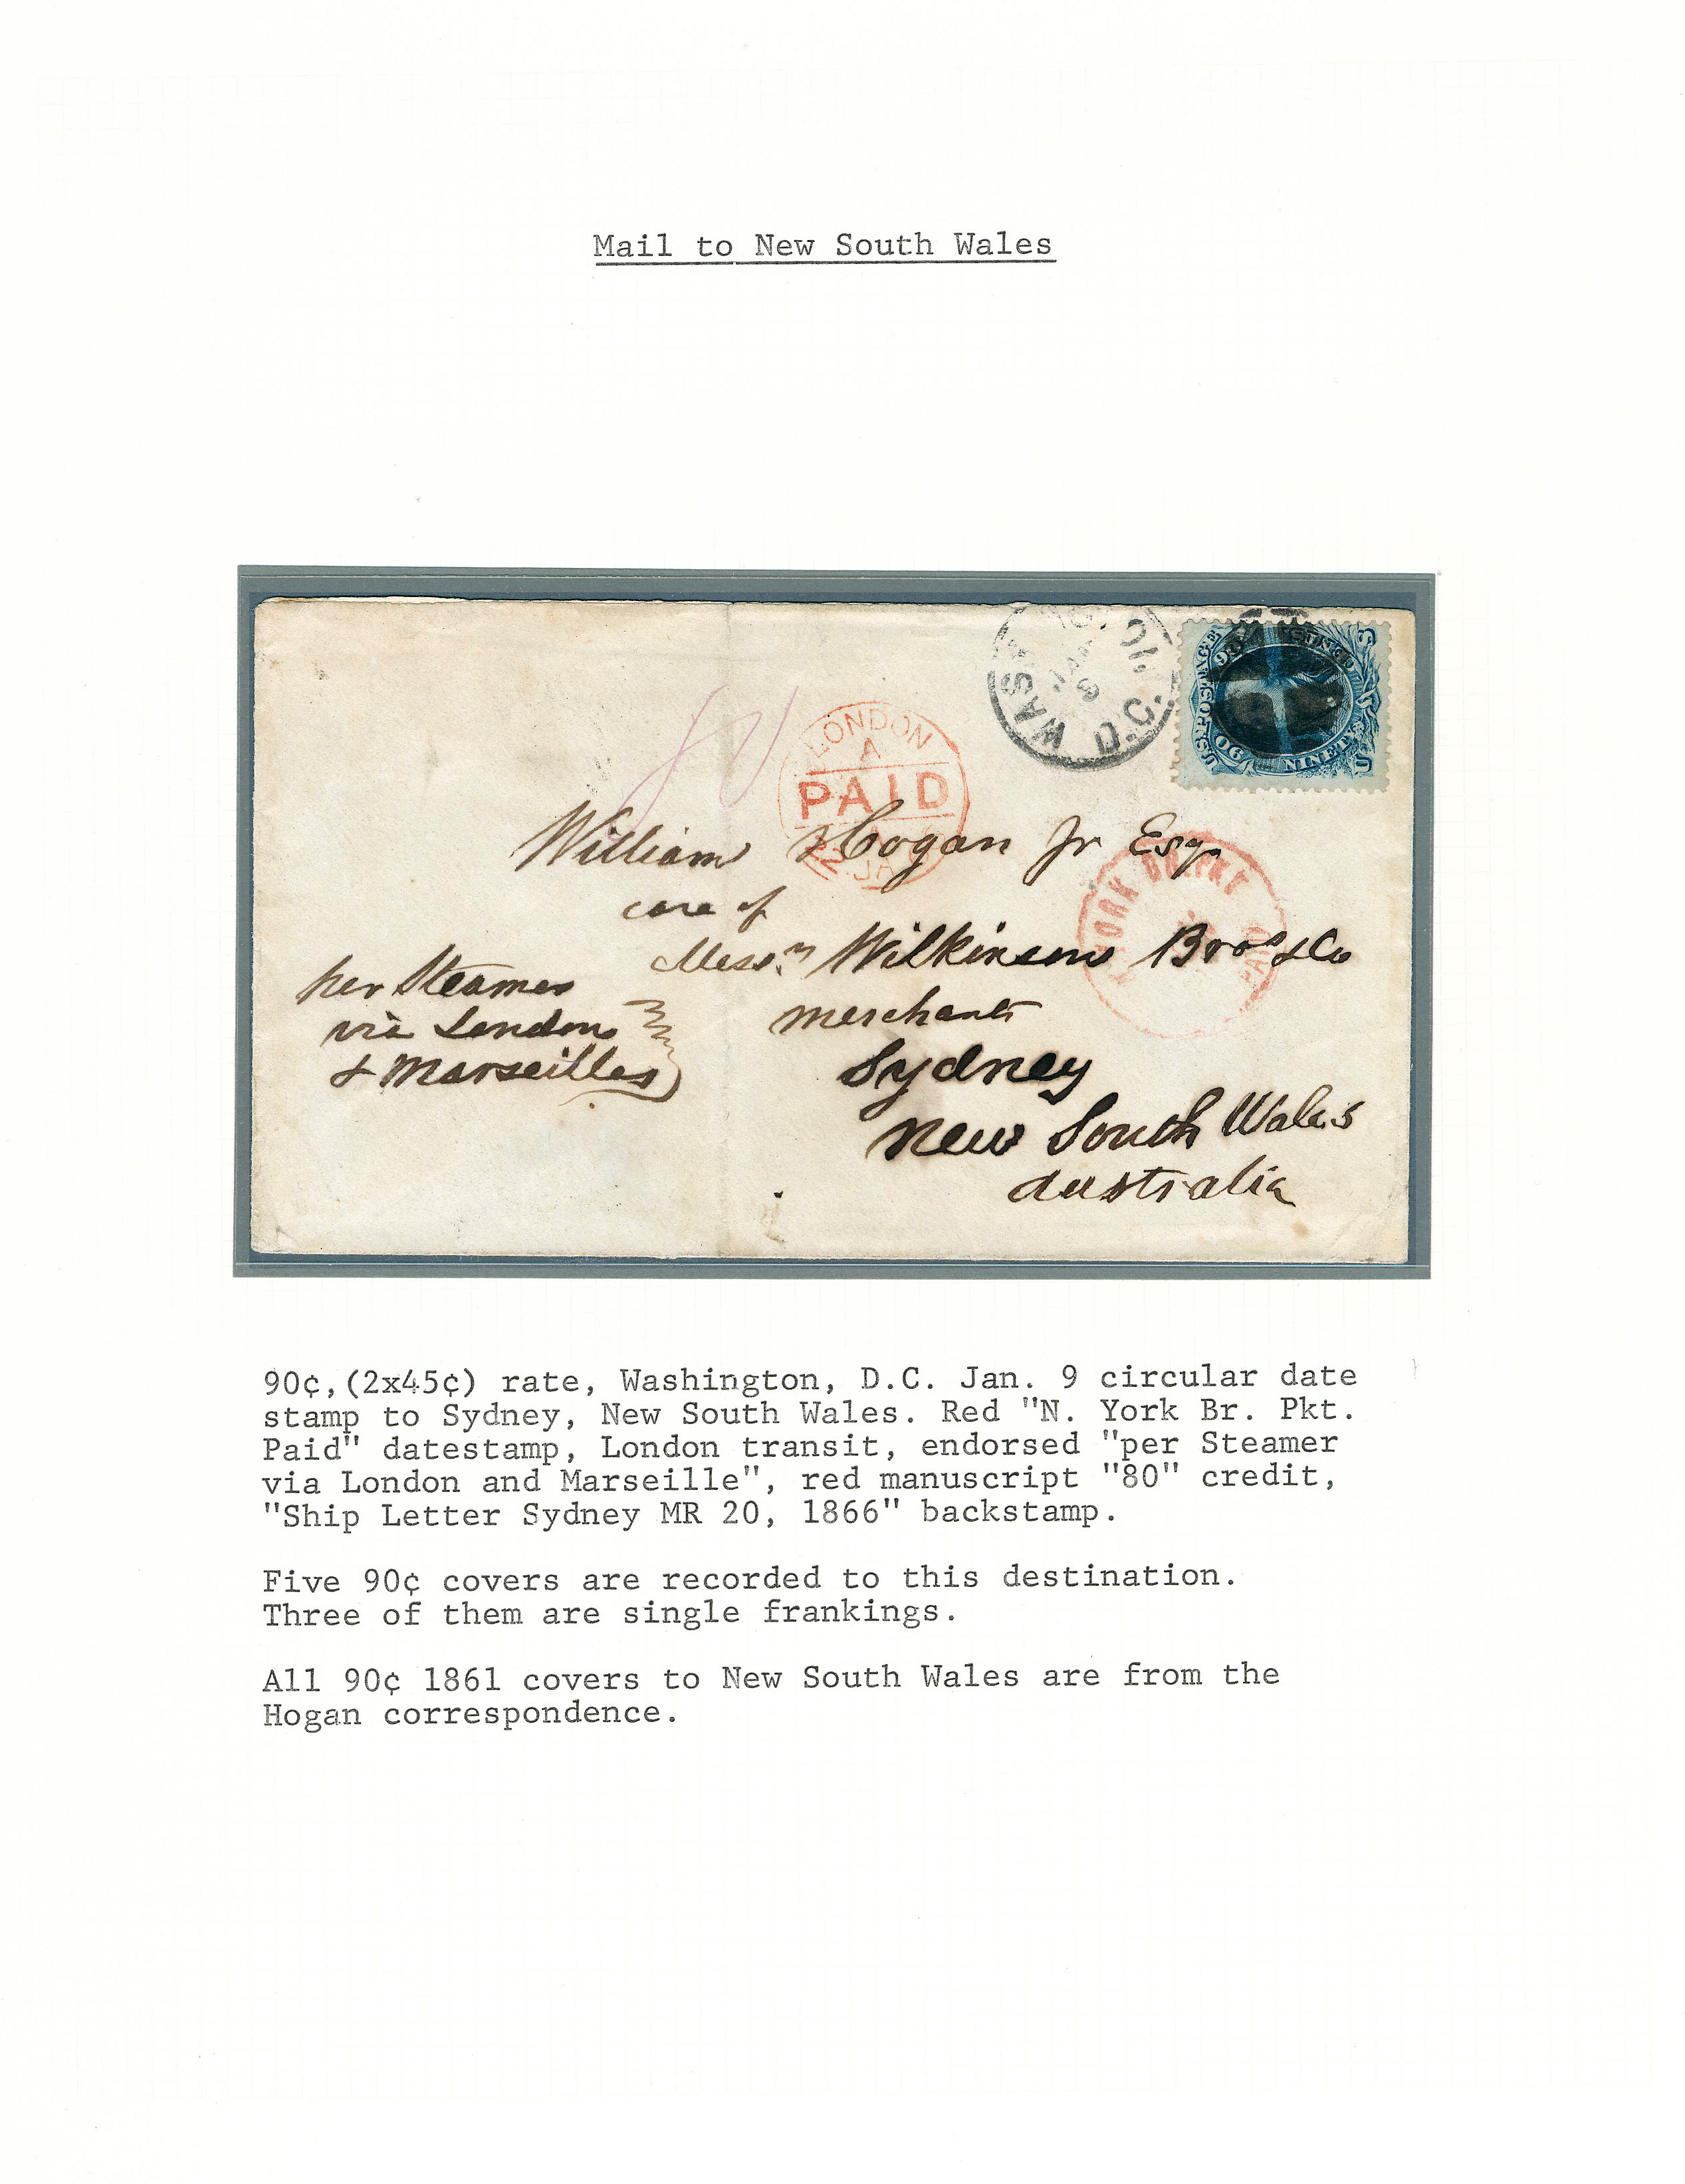 Mail to New South Wales
WASH
D.C.
JAN
9
U.S. POSTAGE
90
90
NINETY
U
S
LONDON
A
PAID
JA
YORK BR. PKT
PAID
William Hogan Jr Esqr
care of
Messrs Wilkinson Bros & Co
merchants
Sydney
New South Wales
Australia
per Steamer
via London
& Marseilles
80
90¢,(2x45¢) rate, Washington, D.C. Jan. 9 circular date
stamp to Sydney, New South Wales. Red "N. York Br. Pkt.
Paid" datestamp, London transit, endorsed "per Steamer
via London and Marseille", red manuscript "80" credit,
"Ship Letter Sydney MR 20, 1866" backstamp.
Five 90¢ covers are recorded to this destination.
Three of them are single frankings.
All 90¢ 1861 covers to New South Wales are from the
Hogan correspondence.